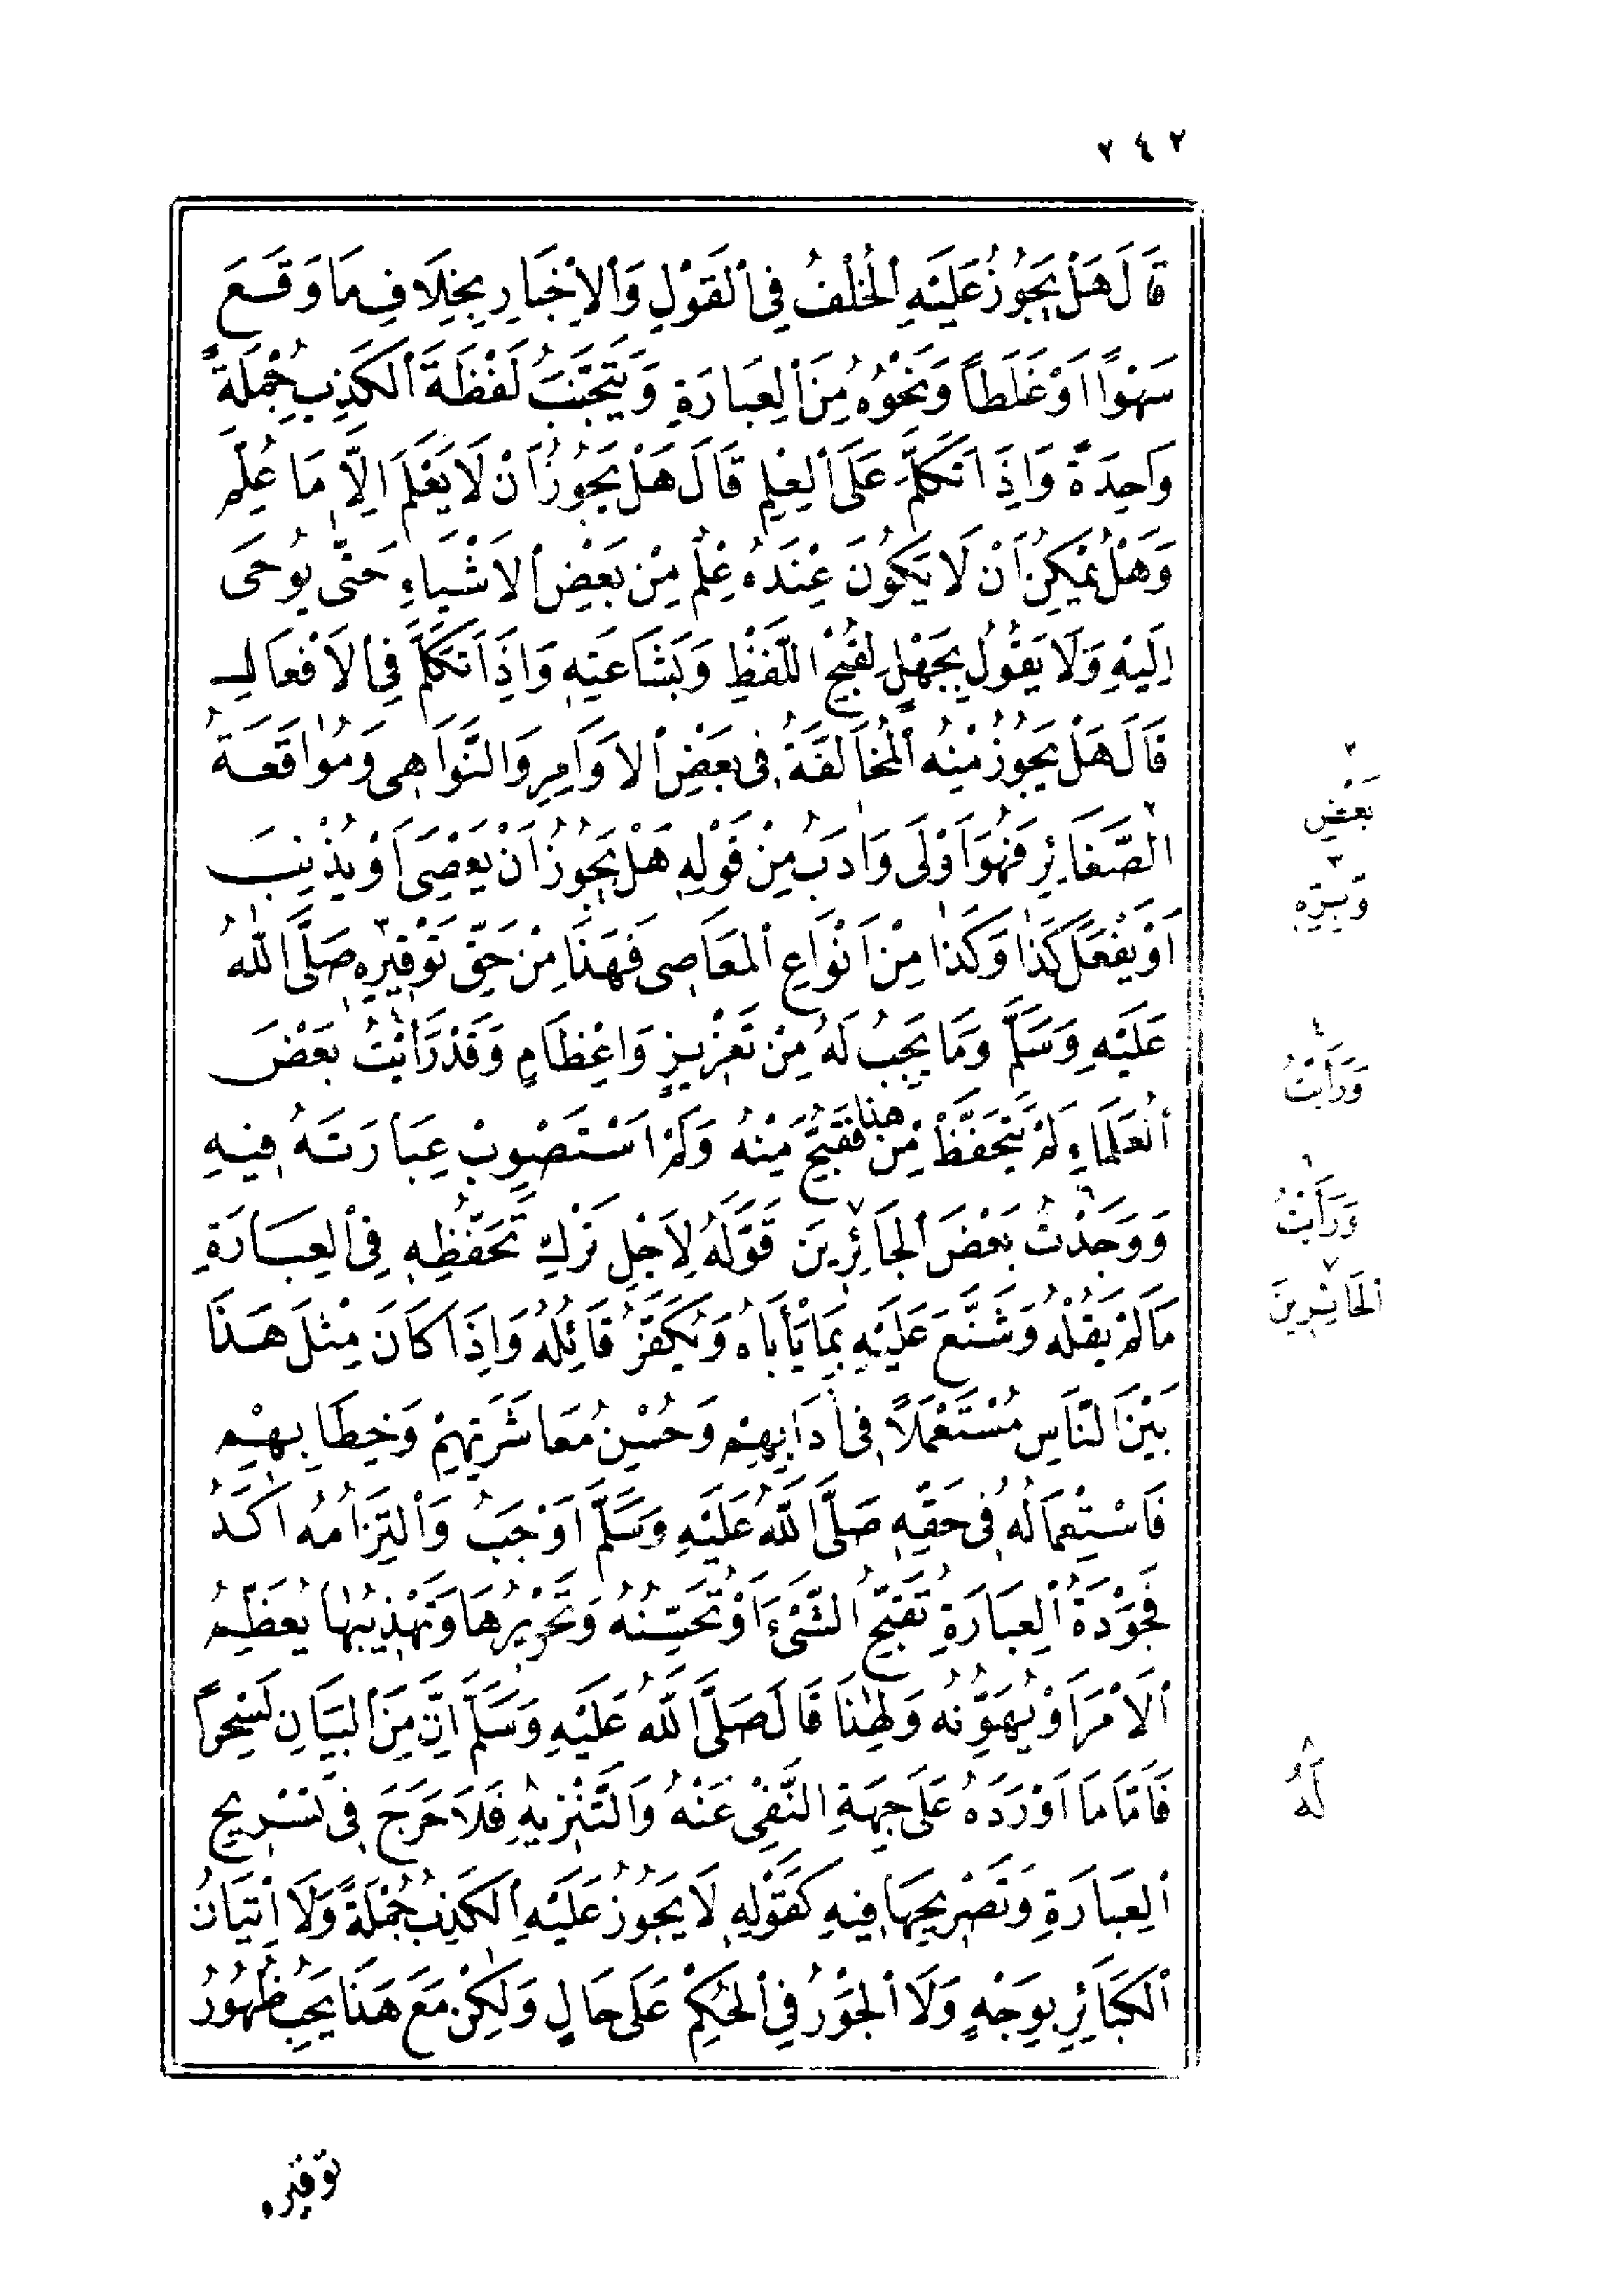 ٢٤٢
قَالَ هَلْ يَجُوزُ عَلَيْهِ اَلْخُلْفُ فِى اَلْقَوْلِ وَاَلْاِخْبَارِ بِخِلَافِ مَا وَقَعَ
سَهْوًا اَوْ غَلَطاً وَنَحْوُهُ مِنَ اَلْعِبَارَةِ وَيَتَجَنَّبُ لَفْظَةَ اَلْكَذِبِ جُمْلَةً
وَاحِدَةً وَاِذَا تَكَلَّمَ عَلَى اَلْعِلْمِ قَالَ هَلْ يَجُوزُ اَنْ لَا يَعْلَمَ اِلَّا مَا عُلِّمَ
وَهَلْ يُمْكِنُ اَنْ لَا يَكُونَ عِنْدَهُ عِلْمٌ مِنْ بَعْضِ اَلْاَشْيَاءِ حَتّٰى يُوحَى
اِلَيْهِ وَلَا يَقُولُ بِجَهْلٍ لِقُبْحِ اللَّفْظِ وَبَشَاعَتِهِ وَاِذَا تَكَلَّمَ فِى اَلْاَفْعَالِ
قَالَ هَلْ يَجُوزُ مِنْهُ اَلْمُخَالَفَةُ فِى بَعْضِ اَلْاَوَامِرِ وَالنَّوَاهِى وَمُوَاقَعَةُ
الصَّغَائِرِ فَهُوَ اَوْلَى وَاٰدَبُ مِنْ قَوْلِهِ هَلْ يَجُوزُ اَنْ يَعْصِىَ اَوْ يُذْنِبَ
اَوْ يَفْعَلَ كَذَا وَكَذَا مِنْ اَنْوَاعِ اَلْمَعَاصِى فَهَذَا مِنْ حَقِّ تَوْقِيرِهِ ٣ صَلَّى اللهُ
عَلَيْهِ وَسَلَّمَ وَمَا يَجِبُ لَهُ مِنْ تَعْزِيزٍ وَاِعْظَامٍ وَقَدْ رَاَيْتُ بَعْضَ
اَلْعُلَمَاءِ لَمْ يَتَحَفَّظْ مِنْ هذا فَقُبِّحَ مِنْهُ وَلَمْ اَسْتَصْوِبْ عِبَارَتَهُ فِيهِ
وَوَجَدْتُ ٦ بَعْضَ اَلْجَائِرِينَ ٧ قَوَّلَهُ لِاَجْلِ تَرْكِ تَحَفُّظِهِ فِى اَلْعِبَارَةِ
مَا لَمْ يَقُلْهُ وَشَنَّعَ عَلَيْهِ بِمَا يَأْبَاهُ وَيُكَفَّرُ قَائِلُهُ وَاِذَا كَانَ مِثْلَ هَذَا
بَيْنَ النَّاسِ مُسْتَعْمَلًا فِى اٰدَابِهِمْ وَحُسْنِ مُعَاشَرَتِهِمْ وَخِطَابِهِمْ
فَاسْتِعْمَالُهُ فِى حَقِّهِ صَلَّى اللهُ عَلَيْهِ وَسَلَّمَ اَوْجَبُ وَاَلْتِزَامُهُ اٰكَدُ
فَجَوْدَةُ اَلْعِبَارَةِ تُقَبِّحُ الشَّىْءَ اَوْ تُحَسِّنُهُ وَتَحْرِيرُهَا وَتَهْذِيبُهَا يُعَظِّمُ
اَلْاَمْرَ اَوْ يُهَوِّنُهُ وَلِهٰذَا قَالَ صَلَّى اللهُ عَلَيْهِ وَسَلَّمَ اِنَّ مِنَ اَلْبَيَانِ لَسِحْرًا
فَاَمَّا مَا اَوْرَدَهُ عَلَى جِهَةِ النَّفْىِ عَنْهُ وَالتَّنْزِيهِ فَلَا حَرَجَ فِى تَسْرِيحِ
اَلْعِبَارَةِ وَتَصْرِيحِهَا فِيهِ كَقَوْلِهِ لَا يَجُوزُ عَلَيْهِ اَلْكَذِبُ جُمْلَةً وَلَا اِتْيَانُ
اَلْكَبَائِرِ بِوَجْهٍ وَلَا اَلْجَوْرُ فِى اَلْحُكْمِ عَلَى حَالٍ وَلَكِنْ مَعَ هَذَا يَجِبُ ظُهُورُ
٢
بَعْضِ
٣
وَبِرِّهِ
٤
وَرَاَيْتُ
٦
وَرَاَيْتُ
٧
اَلْحَائِرِينَ
٨
لَهُ
توقيره